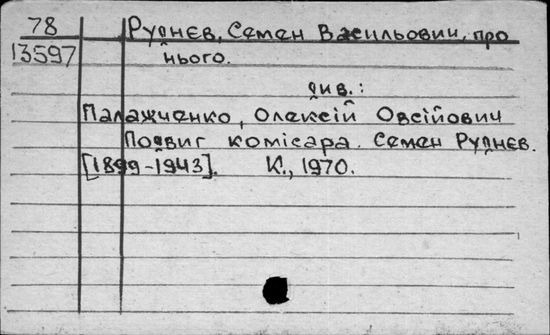 78 Руднєв, Семен Васильович, про
13597 нього.
див.:
Палажченко, Олексій Овсійович
Подвиг комісара. Семен Руднєв.
[1899-1943]. К., 1970.